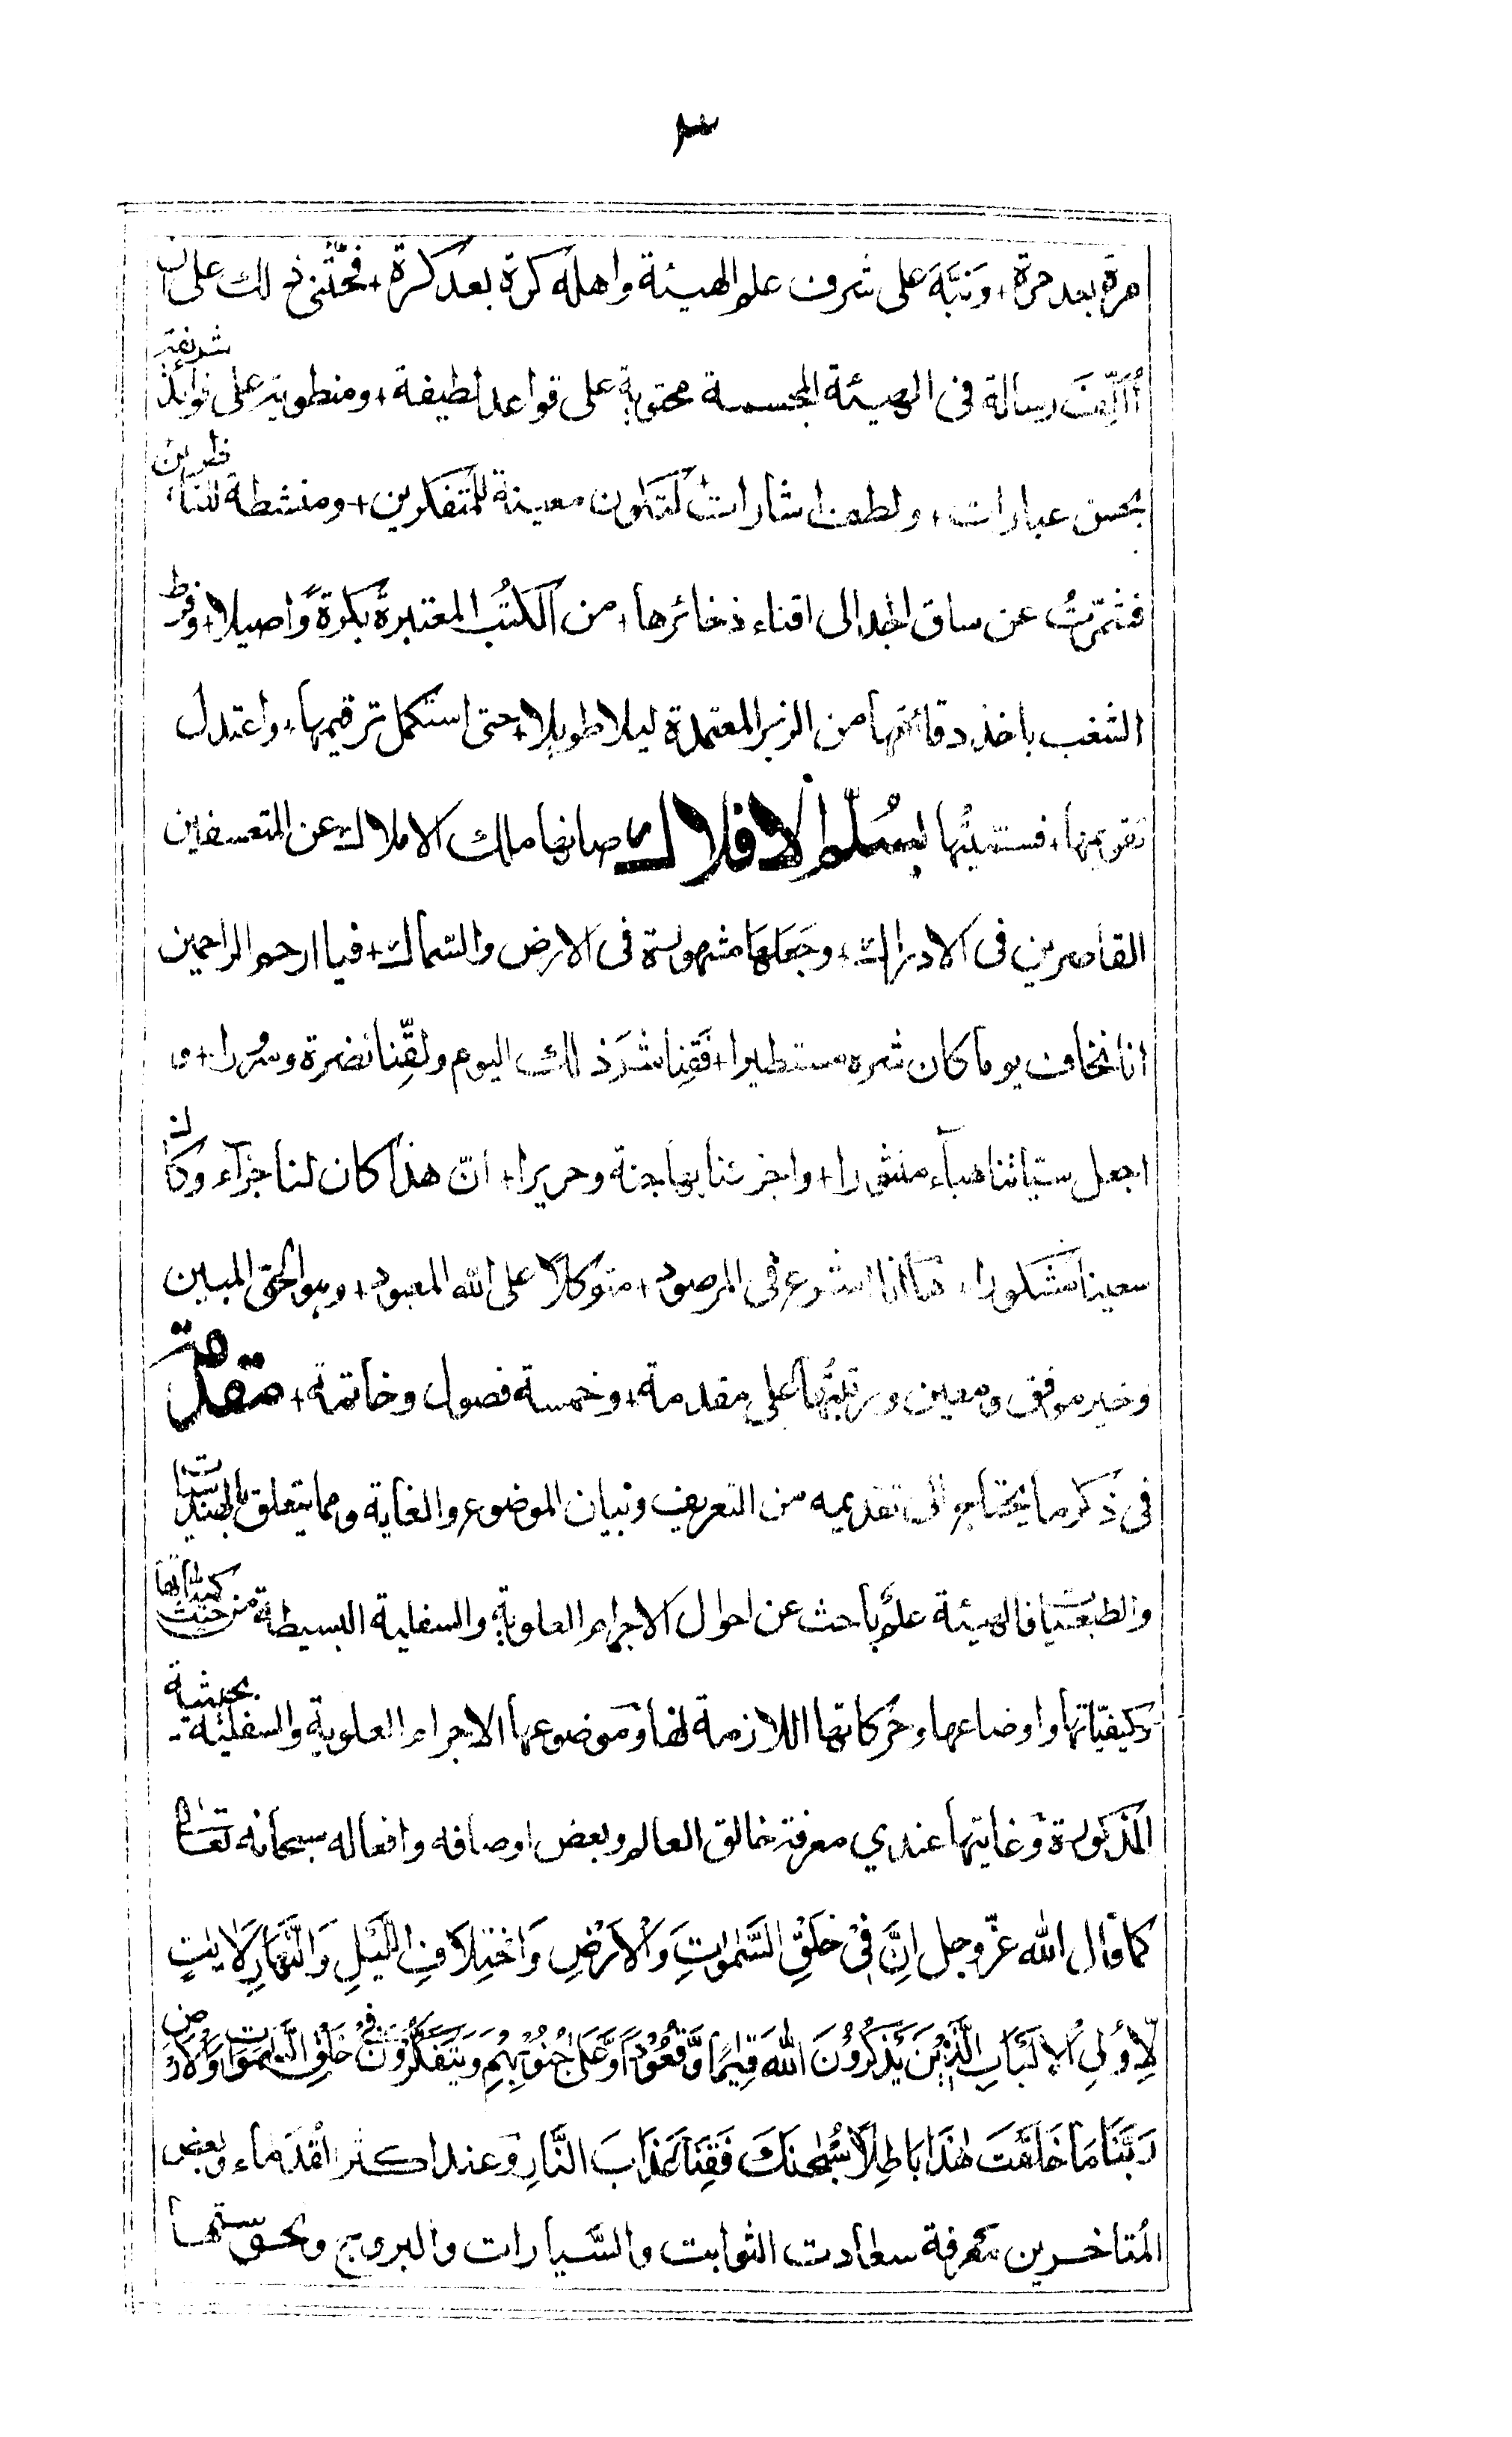 ٣
مرة بعد مرة + ونَبَّهَ على شرف علم الهيئة واهله كرة بعد كرة + فحثّنى ذلك على ان
أُألِّفَ رسالة فى الهيئة المجسمة محتوية على قواعد لطيفة + ومنطوية على فوائد شريفة
بحسن عبارات + ولطف اشارات لتكون معينة للمتفكرين + ومنشطة للناظرين
فشمّرتُ عن ساق الجد الى اقتناء ذخائرها + من الكتُب المعتبرة بكرةً واصيلا + وفرط
الشغب باخذ دقائقها من الزبر المعتمدة ليلا طويلا + حتى استكمل ترقيمها + واعتدل
تقويمها + فسميتُها بسُلّم الافلاك صانها ملك الاملاك عن المتعسفين
القاصرين فى الادراك + وجَعَلهَا مشهورة فى الارض والسماك + فيا ارحم الراحمين
انا نخاف يوما كان شره مستطيرا + فَقِنا شرَ ذلك اليوم ولقِّنا نضرة وسرُورا + و
اجعل سيّاتنا هبآء منثورا + واجزئنا بها جنة وحريرا + انّ هذا كان لنا جزآء وكان
سعينا مشكورا + فها انا اشرع فى المرصود + متوكلاً على الله المعبود + وهو الحق المبين
وخير موفق ومعين ورتبتُها على مقدمة + وخمسة فصول وخاتمة + مقدمة
فى ذكر ما يحتاج الى تقديمه من التعريف وبيان الموضوع والغاية ومما يتعلق بالهندسيات
والطبعيات فالهيئة علمٌ باحث عن احوال الاجرام العلوية والسفلية البسيطة من حيث كمياتها
وكيفيّاتها واوضاعها وحَركاتها اللازمة لها وموضوعها الاجرام العلوية والسفلية بحيثية
المذكورة وغايتها عندي معرفة خالق العالم وبعض اوصافه وافعاله سبحانه تعالى
كما قال الله عزّ وجل اِنَّ فِىْ خَلْقِ السَّمٰوٰتِ وَالْاَرْضِ وَاخْتِلَافِ الَّيْلِ وَالنَّهَارِ لَاٰيٰتٍ
لِّاُولِى الْاَلْبَابِ الَّذِيْنَ يَذْكُرُوْنَ اللّٰهَ قِيَامًا وَّقُعُوْدًا وَّعَلٰى جُنُوْبِهِمْ وَيَتَفَكَّرُوْنَ فِىْ خَلْقِ السَّمٰوٰتِ وَالْاَرْضِ
رَبَّنَا مَا خَلَقْتَ هٰذَا بَاطِلًا سُبْحٰنَكَ فَقِنَا عَذَابَ النَّارِ وعند اكثر القدَماء وبعض
المُتاخرين معرفة سعادت الثوابت والسَّيارات والبروج ونحوستها